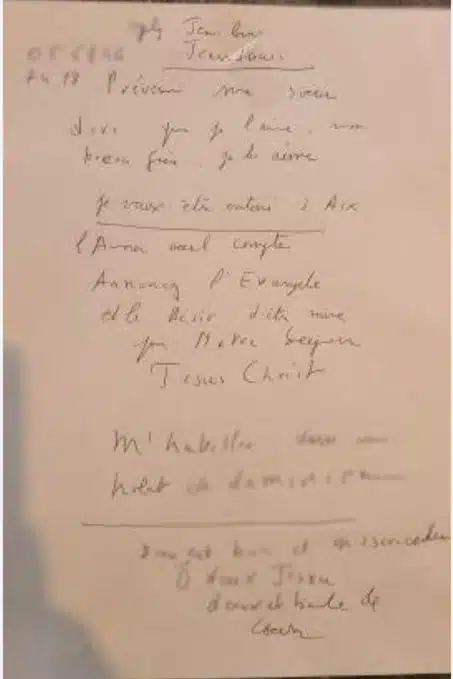 Jean Louis
Prévenir ma sœur
dire que je l'aime, mon
beau frère, je les aime
je veux être enterré à Aix
l'Amour seul compte
Annoncez l'Evangile
et le Désir d'être
par Notre Seigneur
Jésus Christ
M'habiller dans
habit de dominicain
est bon et miséricordieux
Ô doux Jésus
doux et humble de
cœur